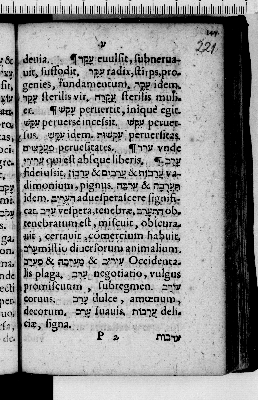 ע
221
deuia. ¶ עָקַר euulsit, subnerua-
uit, suffodit. עִקָּר radix, stirps, pro-
genies, fundamentum. עִקָּר idem.
עָקָר sterilis vir. עֲקָרָה sterilis muli-
er. ¶ עָקַשׁ peruertit, iniquè egit.
עִקֵּשׁ peruersè incessit. עִקֵּשׁ peruer-
sus. עִקֵּשׁ idem. עִקְּשׁוּת peruersitas.
מַעֲקַשִּׁים peruersitates. ¶ ערר vnde
עֲרִירִי qui est absque liberis. ¶ עָרַב
fideiussit, עֲרֻבּוֹת & עֲרֻבִּים & עֵרָבוֹן va-
dimonium, pignus. עֲרֻבָּה & תַּעֲרֻבָה
idem. הֶעֱרִיב aduesperascere signifi-
cat. עֶרֶב vespera, tenebræ, הִתְעָרֵב ob-
tenebratum est, miscuit, obscura-
uit, certauit, comercium habuit.
עָרֹב missio diuersorum animalium.
עֶרֶב & מַעֲרָבָה & מַעֲרָב Occidenta-
lis plaga. עֵרֶב negotiatio, vulgus
promiscuum, subtegmen. עֹרֵב
coruus. עָרֵב dulce, amœnum,
decorum. עָרֵב suauis. עֲרֵבוּת deli
ciæ, signa.
P 2 ערבות